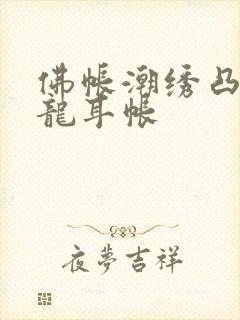 佛帳潮绣凸
龍耳帳
夜夢吉祥